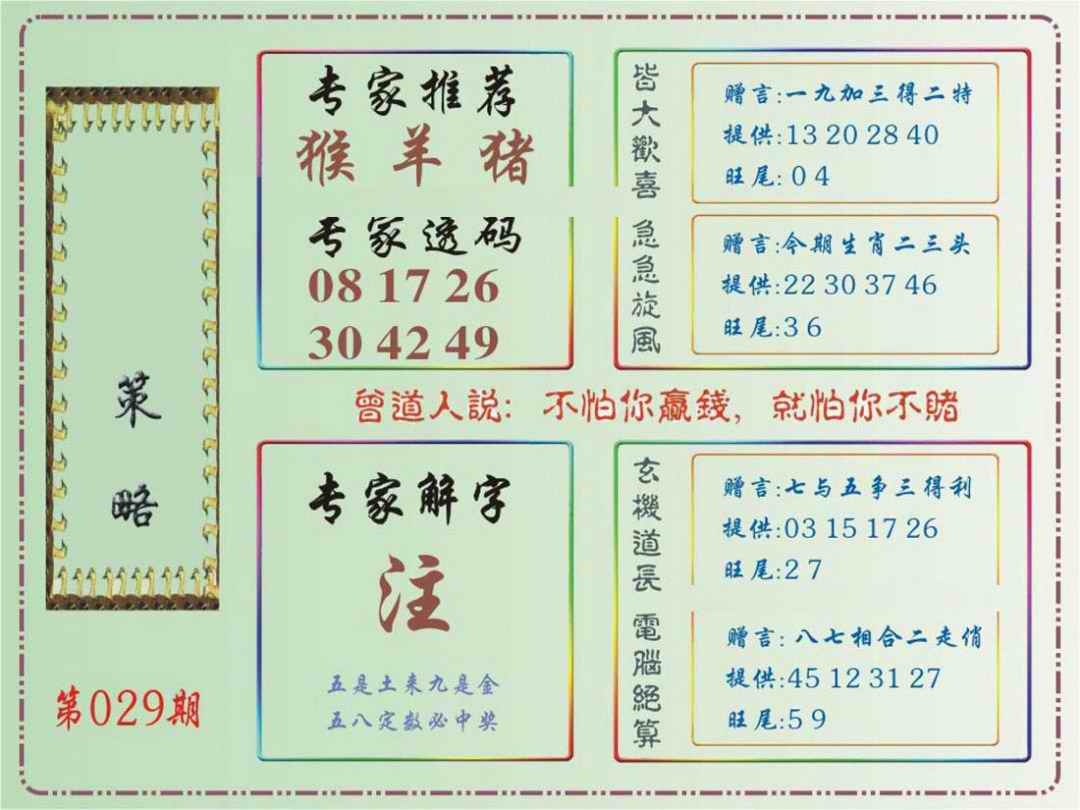 策略
第029期
专家推荐
猴 羊 猪
专家透码
08 17 26
30 42 49
皆大歡喜
赠言:一九加三得二特
提供:13 20 28 40
旺尾:0 4
急急旋風
赠言:今期生肖二三头
提供:22 30 37 46
旺尾:3 6
曾道人説: 不怕你贏錢, 就怕你不賭
专家解字
注
五是土来九是金
五八定数必中奖
玄機道長
赠言:七与五争三得利
提供:03 15 17 26
旺尾:2 7
電腦絕算
赠言: 八七相合二走俏
提供:45 12 31 27
旺尾:5 9